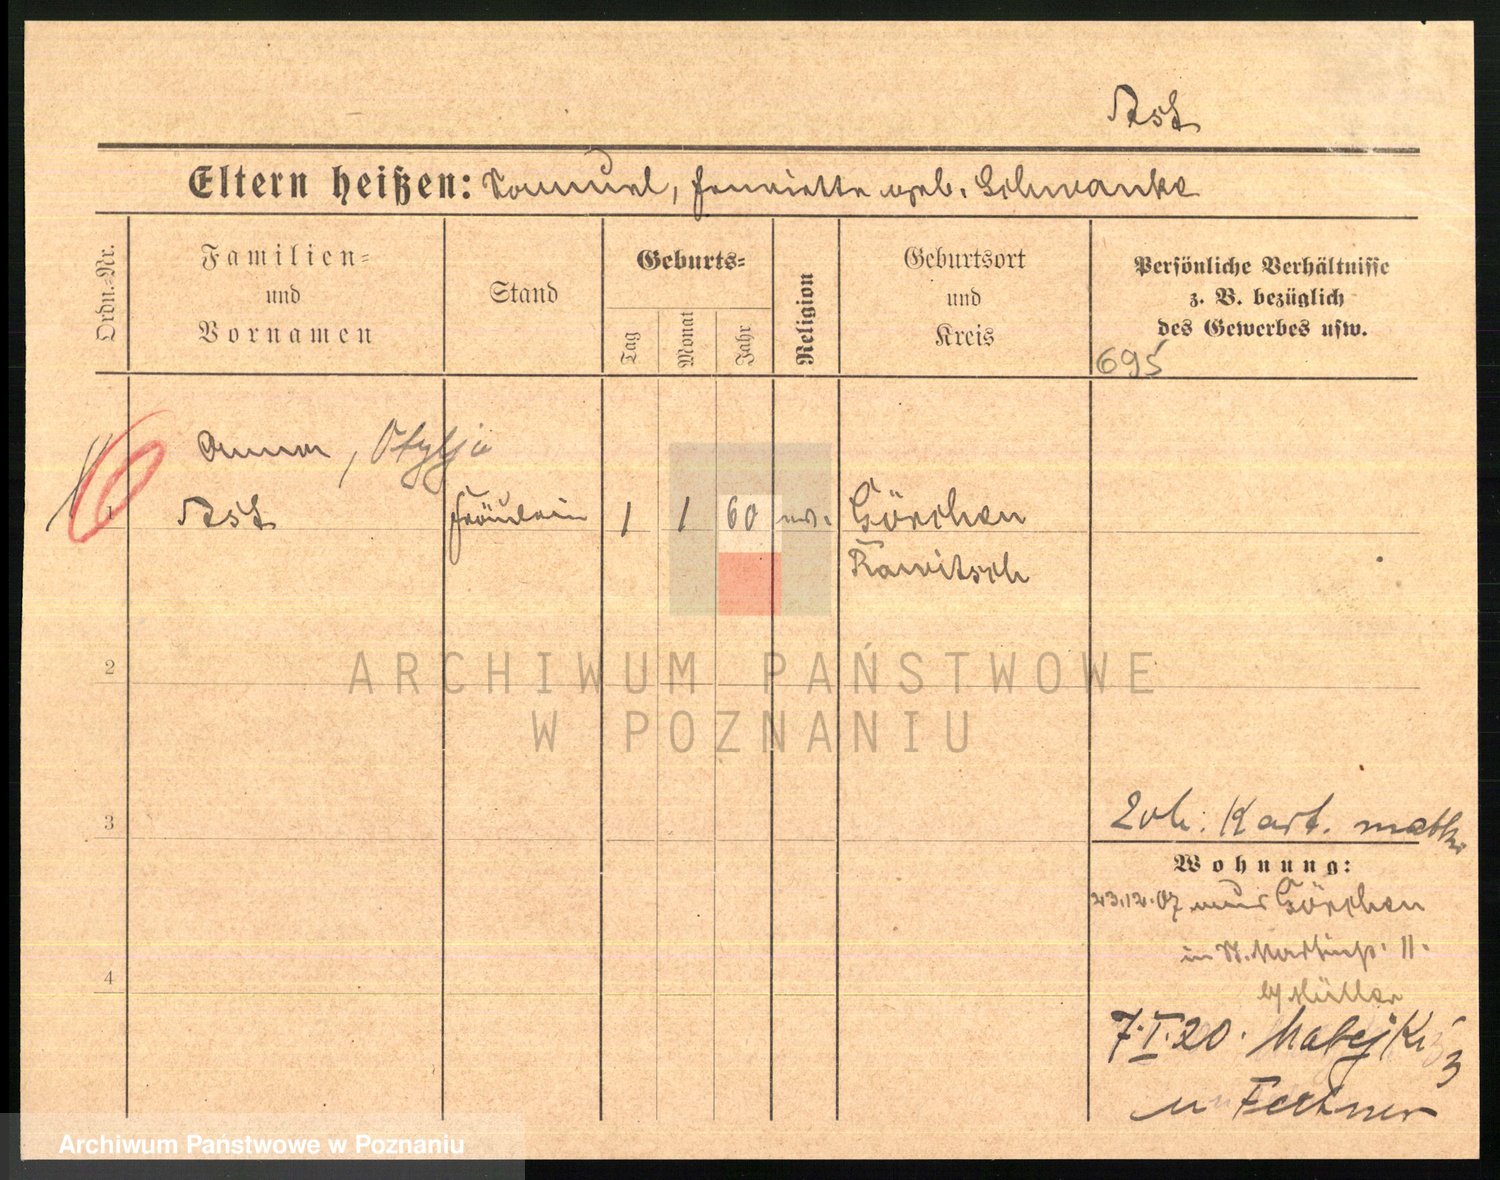 Ast
Eltern heißen: Samuel, Henriette geb. Schwanke
Ordn.-Nr.
Familien-
und
Vornamen
Stand
Geburts-
Tag
Monat
Jahr
Religion
Geburtsort
und
Kreis
Persönliche Verhältnisse
z. B. bezüglich
des Gewerbes usw.
695
Anna, Otylja
1 Ast Fräulein 1 1 60 Görchen
Rawitsch
2
ARCHIWUM PAŃSTWOWE
W POZNANIU
Zob. Kart. matki
3
Wohnung:
23.12.07 aus Görchen
in St. Martinstr. 11.
4
b/ Müller
7.I.20. Matejki 3
u Fechner
Archiwum Państwowe w Poznaniu